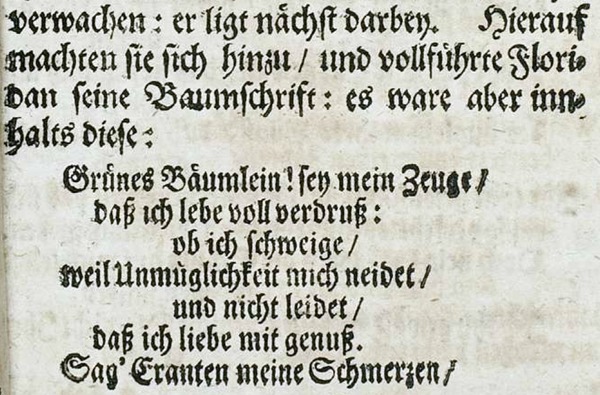 verwachen: er ligt nächst darbey. Hierauf
machten sie sich hinzu / und vollführte Flori-
dan seine Baumschrift: es ware aber inn-
halts diese:
Grünes Bäumlein! sey mein Zeuge /
daß ich lebe voll verdruß:
ob ich schweige /
weil Unmüglichkeit mich neidet /
und nicht leidet /
daß ich liebe mit genuß.
Sag' Eranten meine Schmerzen /